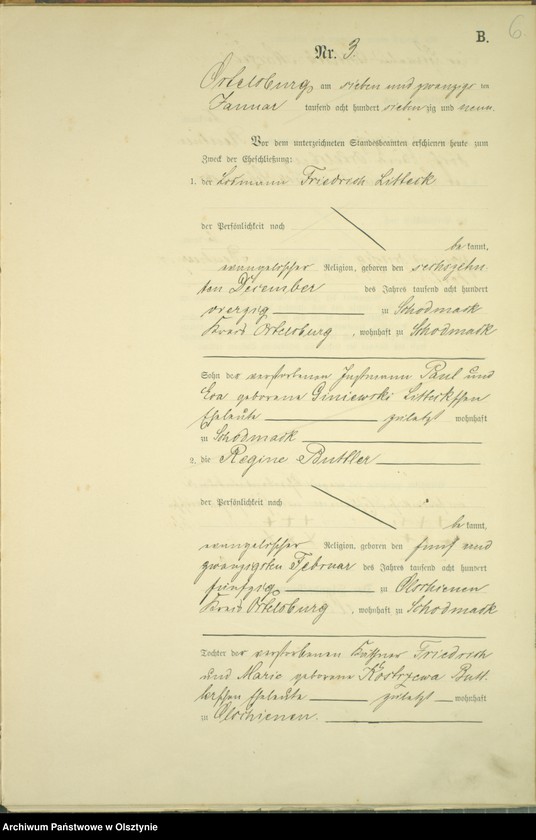 B.
6
Nr. 3.
Ortelsburg am sieben und zwanzigsten
Januar tausend acht hundert siebenzig und neun.
Vor dem unterzeichneten Standesbeamten erschienen heute zum
Zweck der Eheschließung:
1. der Losmann Friedrich Litteck
der Persönlichkeit nach
be kannt,
evangelischer Religion, geboren den sechszehn
ten Dezember des Jahres tausend acht hundert
vierzig zu Schodmack
Kreis Ortelsburg, wohnhaft zu Schodmack
Sohn der verstorbenen Instmann Paul und
Eva geborene Gniewski Litteckschen
Eheleute zuletzt wohnhaft
zu Schodmack
2. die Regine Buttler
der Persönlichkeit nach
be kannt,
evangelischer Religion, geboren den fünf und
zwanzigsten Februar des Jahres tausend acht hundert
fünfzig zu Olschienen
Kreis Ortelsburg, wohnhaft zu Schodmack
Tochter der verstorbenen Käthner Friedrich
und Marie geborene Kostrzewa Butt
lerschen Eheleute zuletzt wohnhaft
zu Olschienen.
Archiwum Państwowe w Olsztynie